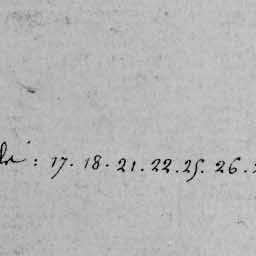 : 17. 18. 21. 22. 25. 26.